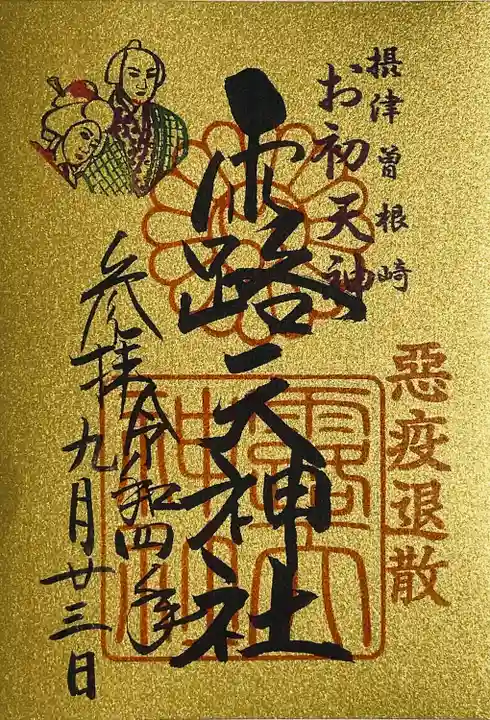 摂津曽根崎
お初天神
露天神社
惡疫退散
参拝令和四年
九月廿三日